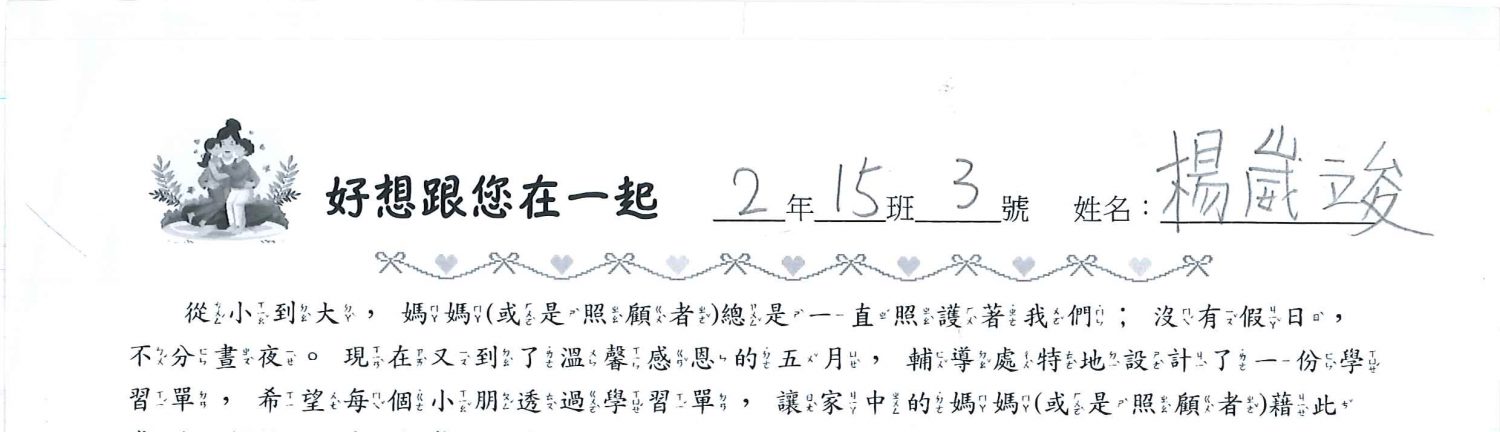 好想跟您在一起 2年15班3號 姓名：楊崴竣
從小到大，媽媽(或是照顧者)總是一直照護著我們；沒有假日，
不分晝夜。現在又到了溫馨感恩的五月，輔導處特地設計了一份學
習單，希望每個小朋透過學習單，讓家中的媽媽(或是照顧者)藉此